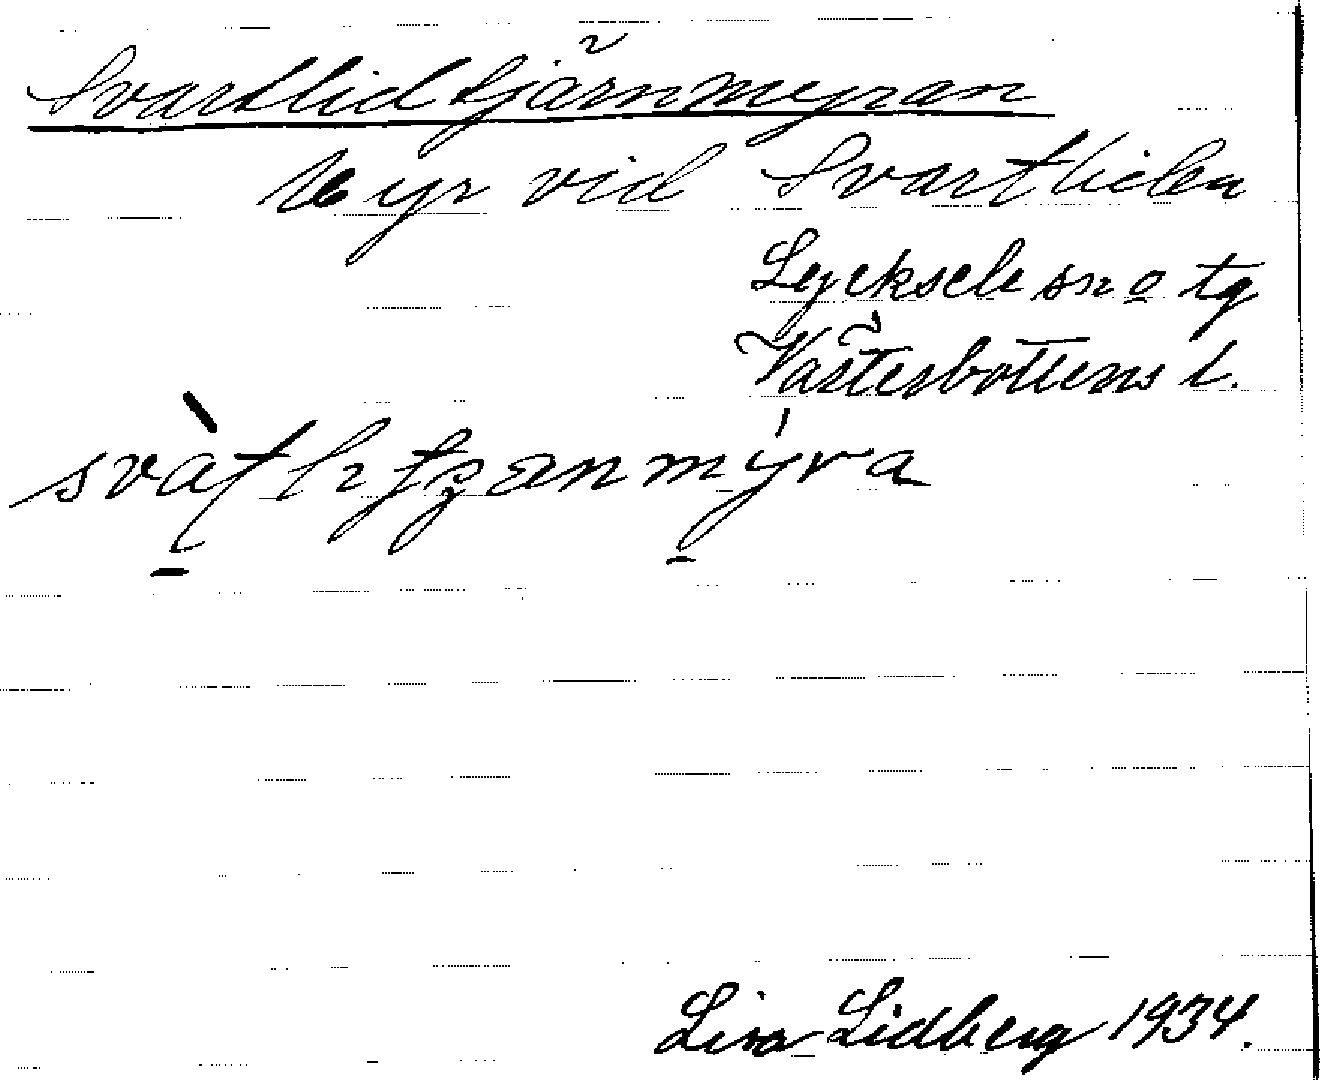 Svartlidtjärnmyran
Myr vid Svartliden
Lycksele sn o tg
Västerbottens l.
Lisa Lidberg 1934.